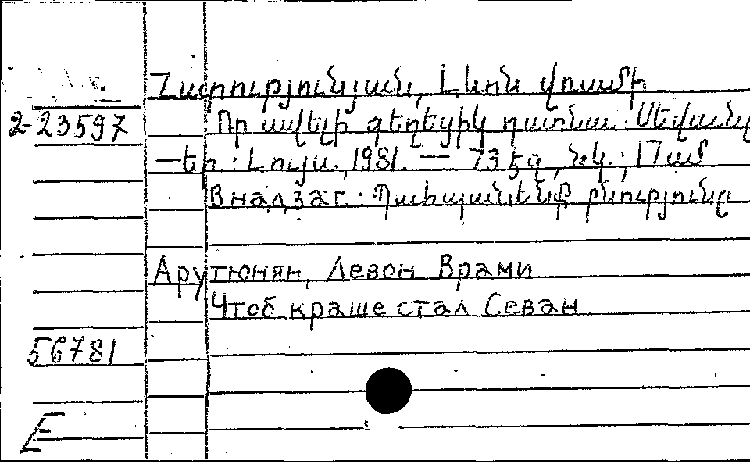 Հարությունյան, Լևոն Վռամի
2-23597 Որ ավելի գեղեցիկ դառնա Սևանը
— Եր.: Լույս, 1981. — 73 էջ, նկ.; 17 սմ
В надзаг.: Պահպանենք բնությունը
Арутюнян, Левон Врами
Чтоб краше стал Севан
56781
E